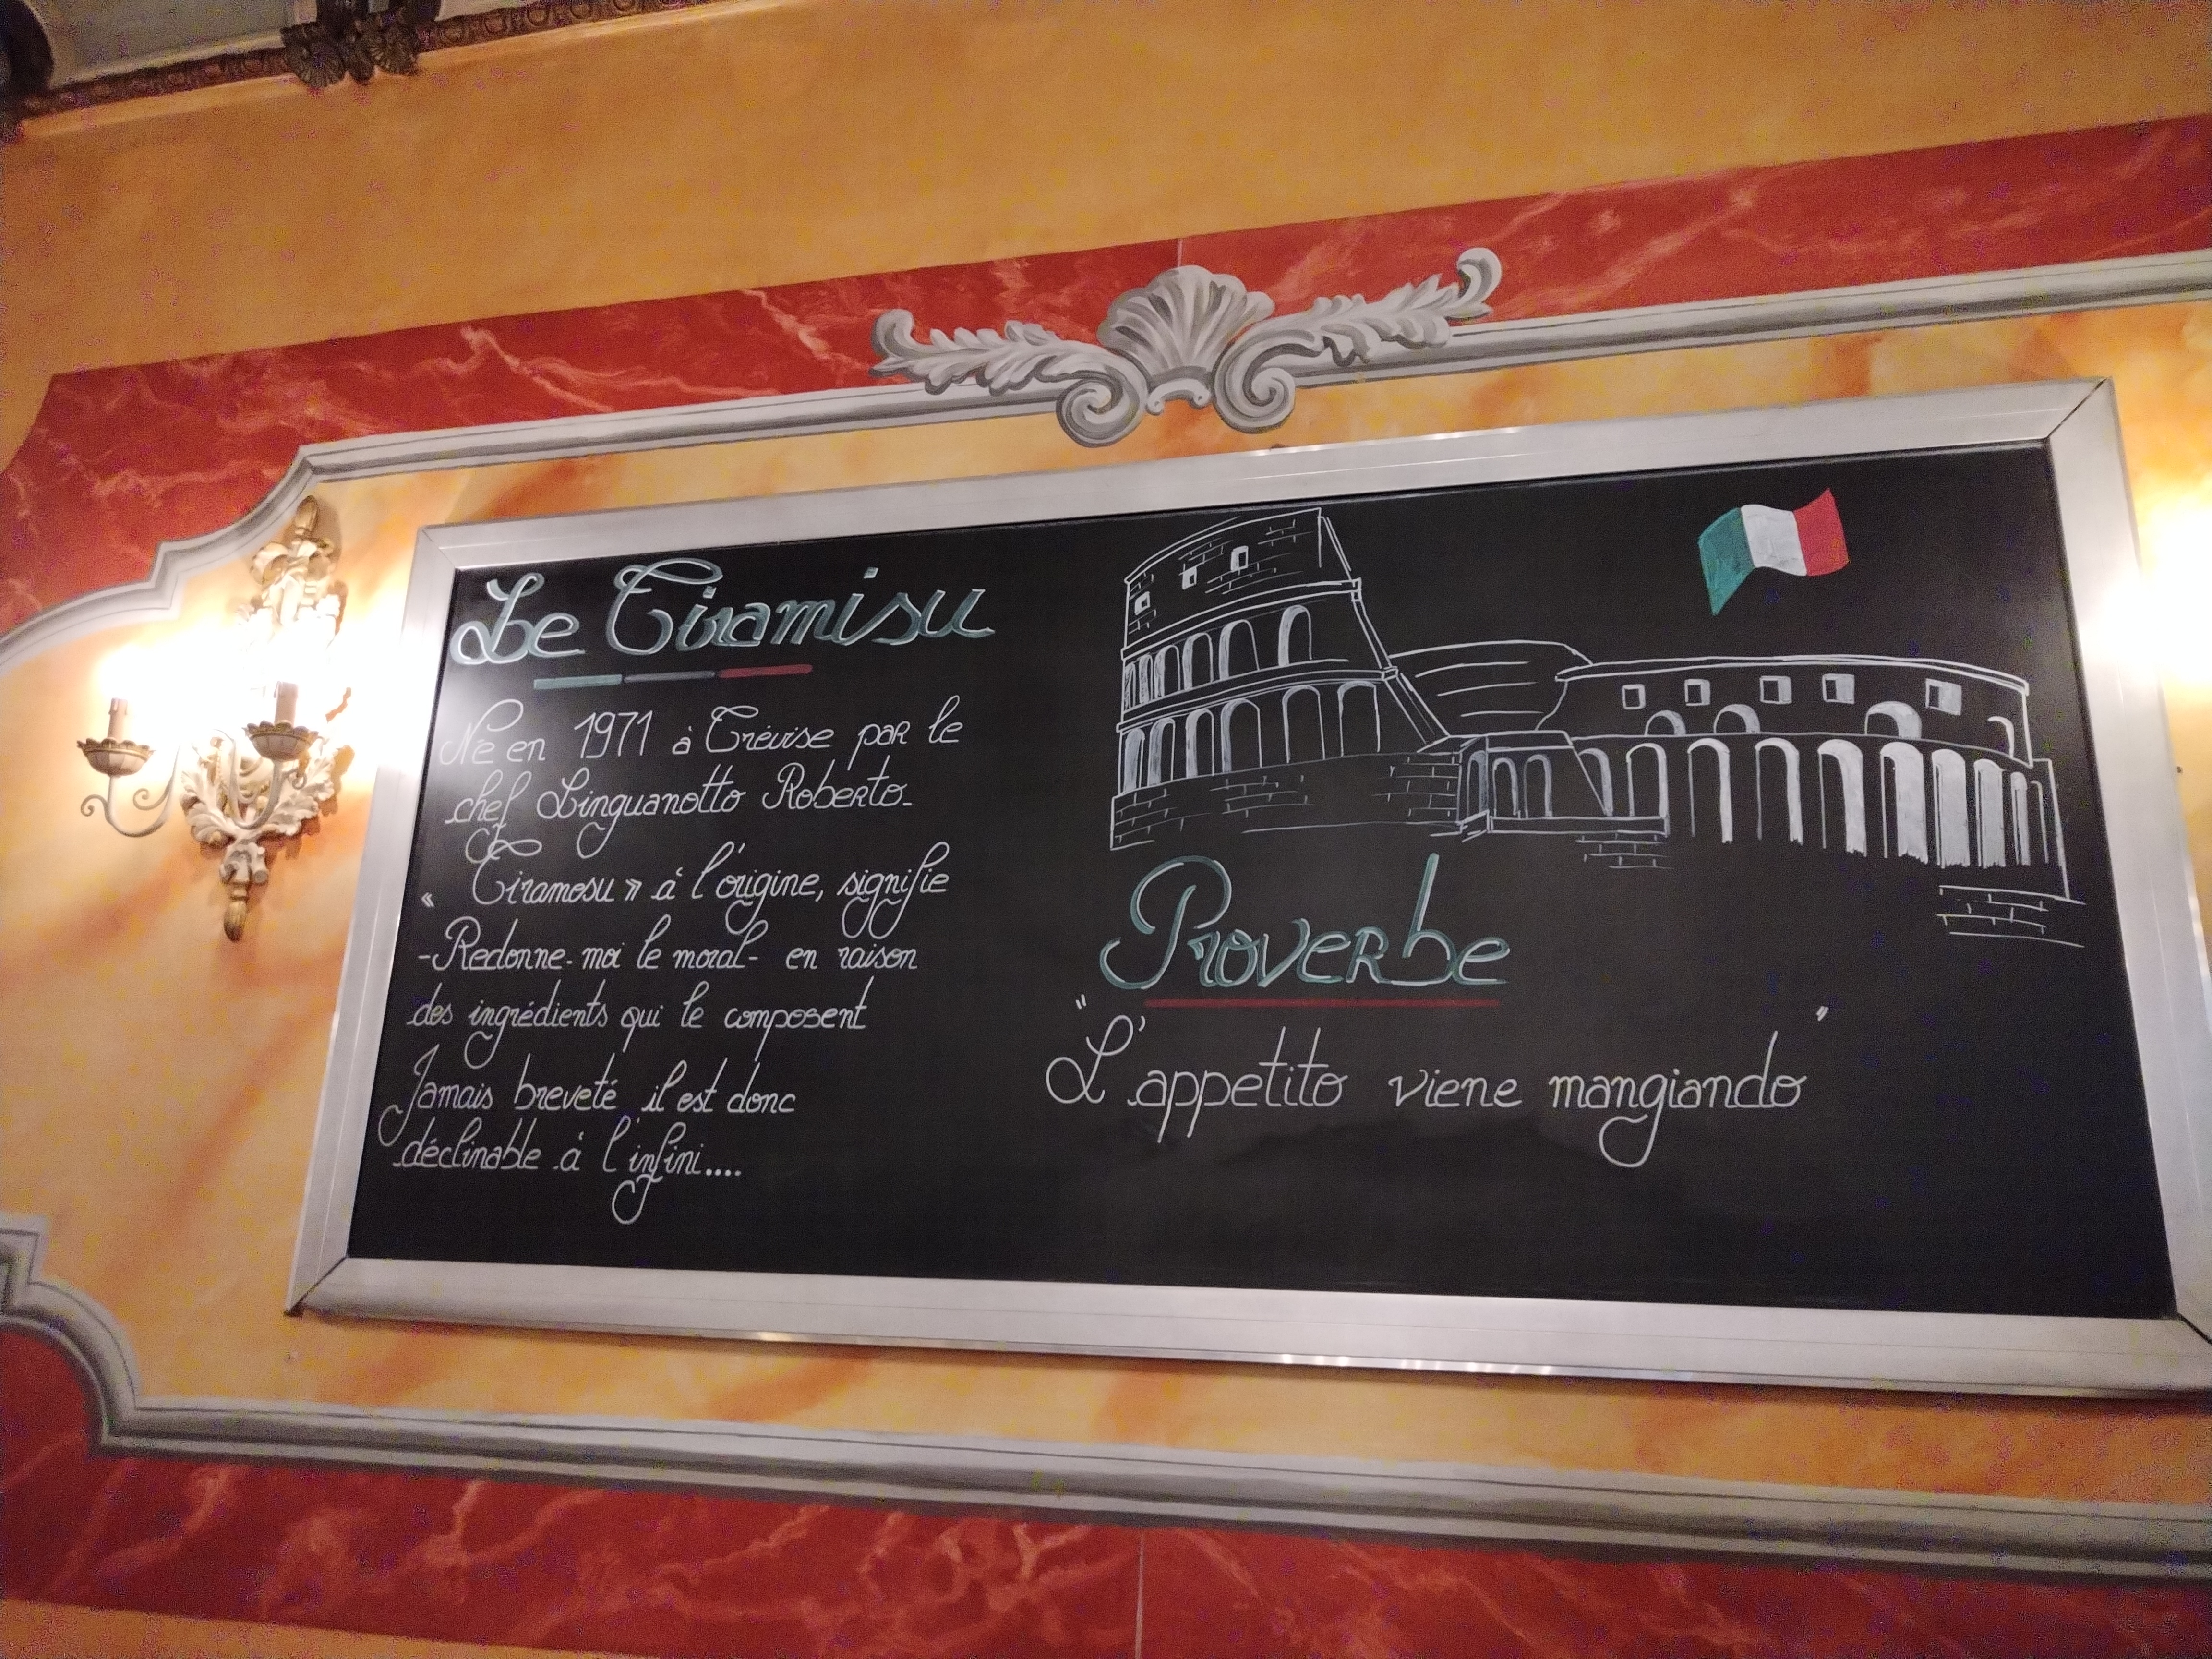 Le Tiramisu
Né en 1971 à Trévise par le
chef Linguanotto Roberto.
« Tiramesu » à l'origine, signifie
-Redonne-moi le moral- en raison
des ingrédients qui le composent
Jamais breveté il est donc
déclinable à l'infini....
Proverbe
"L'appetito viene mangiando"